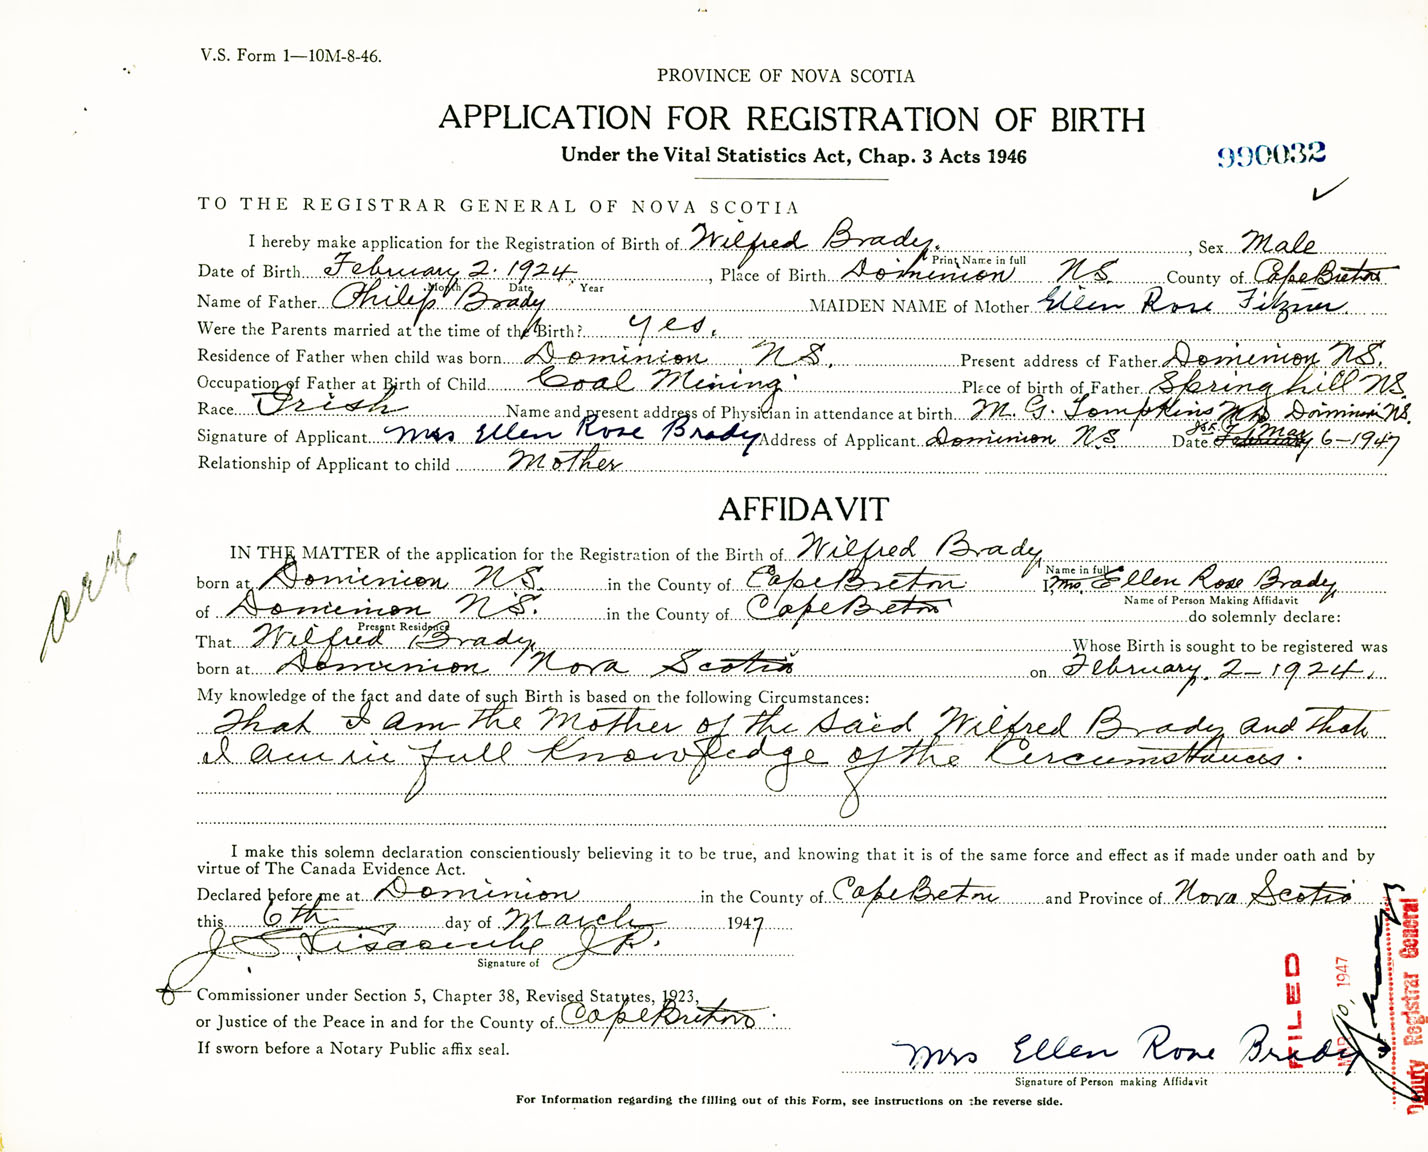 V.S. Form 1—10M-8-46.
PROVINCE OF NOVA SCOTIA
APPLICATION FOR REGISTRATION OF BIRTH
Under the Vital Statistics Act, Chap. 3 Acts 1946
990032
TO THE REGISTRAR GENERAL OF NOVA SCOTIA
I hereby make application for the Registration of Birth of Wilfred Brady. , Sex Male
Print Name in full
Date of Birth February 2. 1924 , Place of Birth Dominion NS. County of Cape Breton
Month Date Year
Name of Father Philip Brady MAIDEN NAME of Mother Ellen Rose Fitzner.
Were the Parents married at the time of the Birth? yes.
Residence of Father when child was born Dominion NS. Present address of Father Dominion NS.
Occupation of Father at Birth of Child Coal Mining Place of birth of Father Springhill NS.
Race Irish Name and present address of Physician in attendance at birth M. G. Tompkins MD Dominion NS.
Signature of Applicant Mrs Ellen Rose Brady Address of Applicant Dominion NS Date Mar 6-1947
Relationship of Applicant to child Mother
AFFIDAVIT
IN THE MATTER of the application for the Registration of the Birth of Wilfred Brady
Name in full
born at Dominion NS. in the County of Cape Breton I, Mrs. Ellen Rose Brady
Name of Person Making Affidavit
of Dominion NS. in the County of Cape Breton do solemnly declare:
Present Residence
That Wilfred Brady Whose Birth is sought to be registered was
born at Dominion Nova Scotia on February. 2-1924.
My knowledge of the fact and date of such Birth is based on the following Circumstances:
That I am the Mother of the said Wilfred Brady and that
I am in full Knowledge of the Circumstances.
I make this solemn declaration conscientiously believing it to be true, and knowing that it is of the same force and effect as if made under oath and by
virtue of The Canada Evidence Act.
Declared before me at Dominion in the County of Cape Breton and Province of Nova Scotia
this 6th day of March 1947
J. S. JP.
Signature of
Commissioner under Section 5, Chapter 38, Revised Statutes, 1923,
or Justice of the Peace in and for the County of Cape Breton
If sworn before a Notary Public affix seal.
Mrs Ellen Rose Brady
Signature of Person making Affidavit
For Information regarding the filling out of this Form, see instructions on the reverse side.
FILED
1947
Deputy Registrar General